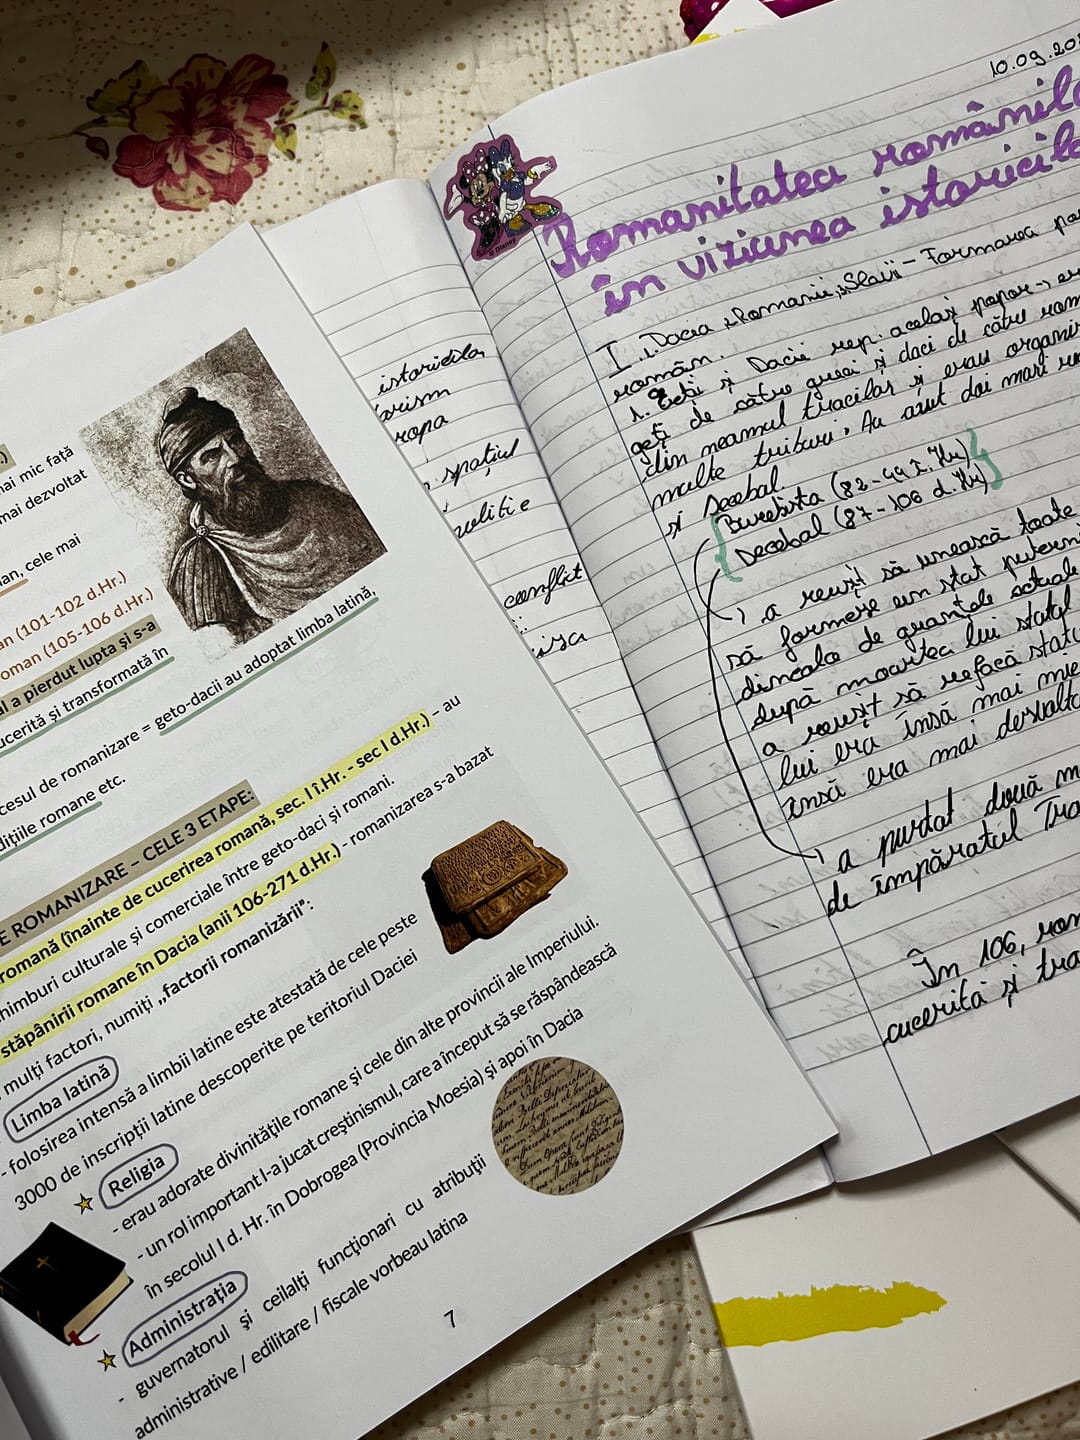 .)
mai mic față
mai dezvoltat
an, cele mai
an (101-102 d.Hr.)
oman (105-106 d.Hr.)
al a pierdut lupta și s-a
ucerită și transformată în
cesul de romanizare = geto-dacii au adoptat limba latină,
dițiile romane etc.
E ROMANIZARE – CELE 3 ETAPE:
romană (înainte de cucerirea romană, sec. I î.Hr. - sec I d.Hr.) – au
himburi culturale și comerciale între geto-daci și romani.
stăpânirii romane în Dacia (anii 106-271 d.Hr.) - romanizarea s-a bazat
mulți factori, numiți „factorii romanizării”:
Limba latină
- folosirea intensă a limbii latine este atestată de cele peste
3000 de inscripții latine descoperite pe teritoriul Daciei
Religia
- erau adorate divinitățile romane și cele din alte provincii ale Imperiului.
- un rol important l-a jucat creștinismul, care a început să se răspândească
în secolul I d. Hr. în Dobrogea (Provincia Moesia) și apoi în Dacia
Administrația
- guvernatorul și ceilalți funcționari cu atribuții
administrative / edilitare / fiscale vorbeau latina
7
istoricilor
ropa
spațiul
politice
conflict
© Disney
10.09.20
Romanitatea românilo
în viziunea istoricilo
I. Dacia, Romanii, Slavii - Formarea po
român.
1. Geții și Dacii rep. același popor → er
geți de către greci și daci de către rom
din neamul tracilor și erau organi
multe triburi. Au avut doi mari
și Decebal.
Burebista (82-44 î.Hr)
Decebal (87-106 d.Hr)
a reușit să unească toate
să formeze un stat putern
dincolo de granițele actuale
după moartea lui statul
a reușit să refacă statu
lui era însă mai mic
însă era mai dezvolta
a purtat două
de împăratul Tra
În 106, rom
cucerită și tra